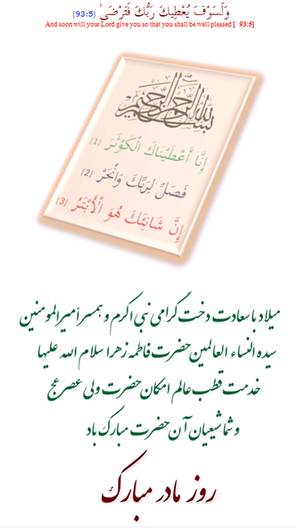 وَلَسَوْفَ يُعْطِيكَ رَبُّكَ فَتَرْضَىٰ (93:5)
And soon will your Lord give you so that you shall be well pleased [ 93:5]
بسم الله الرحمن الرحيم
إِنَّا أَعْطَيْنَاكَ الْكَوْثَرَ (1)
فَصَلِّ لِرَبِّكَ وَانْحَرْ (2)
إِنَّ شَانِئَكَ هُوَ الْأَبْتَرُ (3)
میلاد با سعادت دخت گرامی نبی اکرم و همسر أمیرالمومنین
سیده النساء العالمین حضرت فاطمه زهرا سلام الله علیها
خدمت قطب عالم امکان حضرت ولی عصر عج
و شما شیعیان آن حضرت مبارک باد
روز مادر مبارک